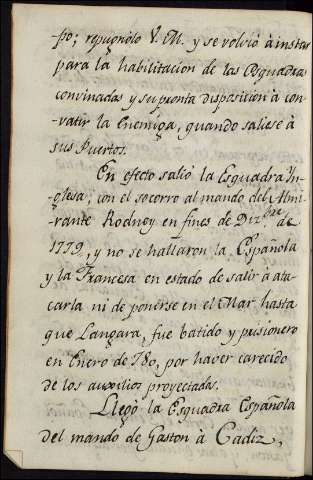 -po; repugnólo V. M. y se volvió à instar
para la habilitacion de las Esquadras
convinadas y su pronta disposicion à con-
-vatir la Enemiga, quando saliese à
sus Puertos.
En efecto salió la Esquadra In-
-glesa, con el socorro al mando del Almi-
-rante Rodney en fines de Diz.bre de
1779, y no se hallaron la Española
y la Francesa en estado de salir à ata-
carla ni de ponerse en el Mar hasta
que Langara, fue batido y prisionero
en Enero de 780, por haver carecido
de los auxilios proyectados.
Llegó la Esquadra Española
del mando de Gaston à Cadiz,